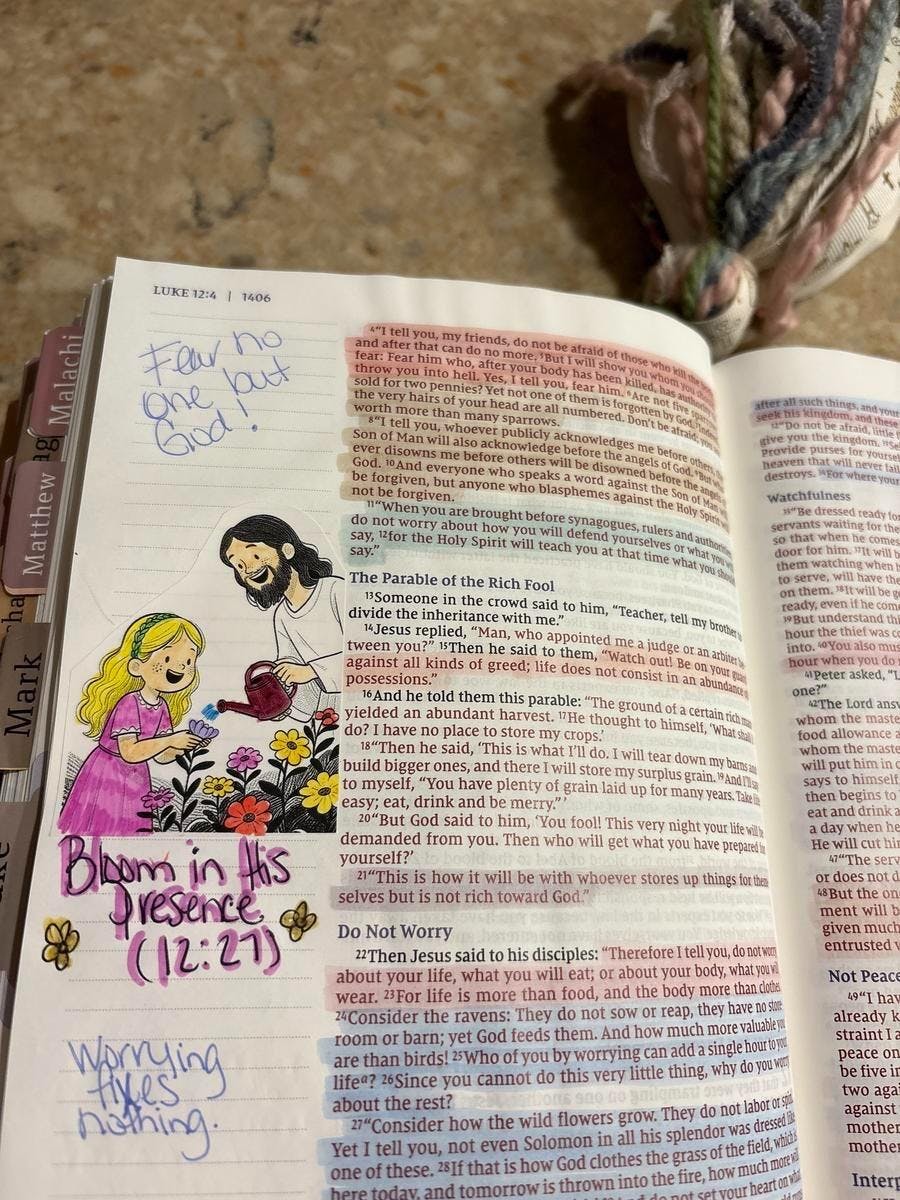 LUKE 12:4 | 1406
Fear no
one but
God!
Malachi
Matthew
Mark
Bloom in His
Presence
(12:27)
Worrying
fixes
nothing.
4"I tell you, my friends, do not be afraid of those who kill the
and after that can do no more. 5But I will show you whom you should
fear: Fear him who, after your body has been killed, has
throw you into hell. Yes, I tell you, fear him. 6Are not five
sold for two pennies? Yet not one of them is forgotten by God.
the very hairs of your head are all numbered. Don't be afraid; you
worth more than many sparrows.
8"I tell you, whoever publicly acknowledges me before others, the
Son of Man will also acknowledge before the angels of God. 9But
ever disowns me before others will be disowned before the angels
God. 10And everyone who speaks a word against the Son of Man will
be forgiven, but anyone who blasphemes against the Holy Spirit will
not be forgiven.
11"When you are brought before synagogues, rulers and authorities,
do not worry about how you will defend yourselves or what you will
say, 12for the Holy Spirit will teach you at that time what you should
say."
The Parable of the Rich Fool
13Someone in the crowd said to him, "Teacher, tell my brother to
divide the inheritance with me."
14Jesus replied, "Man, who appointed me a judge or an arbiter be-
tween you?" 15Then he said to them, "Watch out! Be on your guard
against all kinds of greed; life does not consist in an abundance of
possessions."
16And he told them this parable: "The ground of a certain rich man
yielded an abundant harvest. 17He thought to himself, 'What shall
do? I have no place to store my crops.'
18"Then he said, 'This is what I'll do. I will tear down my barns and
build bigger ones, and there I will store my surplus grain. 19And I'll say
to myself, "You have plenty of grain laid up for many years. Take life
easy; eat, drink and be merry."'
20"But God said to him, 'You fool! This very night your life will be
demanded from you. Then who will get what you have prepared for
yourself?'
21"This is how it will be with whoever stores up things for them-
selves but is not rich toward God."
Do Not Worry
22Then Jesus said to his disciples: "Therefore I tell you, do not worry
about your life, what you will eat; or about your body, what you will
wear. 23For life is more than food, and the body more than clothes.
24Consider the ravens: They do not sow or reap, they have no store-
room or barn; yet God feeds them. And how much more valuable you
are than birds! 25Who of you by worrying can add a single hour to your
lifeᵃ? 26Since you cannot do this very little thing, why do you worry
about the rest?
27"Consider how the wild flowers grow. They do not labor or spin.
Yet I tell you, not even Solomon in all his splendor was dressed like
one of these. 28If that is how God clothes the grass of the field, which is
here today, and tomorrow is thrown into the fire, how much more will
do not set your heart on what
after all such things, and your
seek his kingdom, and these
32"Do not be afraid, little
give you the kingdom.
Provide purses for yourse
heaven that will never fail
destroys. 34For where your
Watchfulness
35"Be dressed ready for
servants waiting for the
so that when he comes
door for him. 37It will b
them watching when h
to serve, will have the
on them. 38It will be go
ready, even if he come
39But understand thi
hour the thief was co
into. 40You also mus
hour when you do n
41Peter asked, "L
one?"
42The Lord answ
whom the maste
food allowance a
whom the maste
will put him in c
says to himself
then begins to
eat and drink a
a day when he
He will cut hi
47"The serv
or does not d
48But the on
ment will b
given much
entrusted w
Not Peace
49"I hav
already k
straint I a
peace on
be five in
two agai
against
mother
mother
Interp